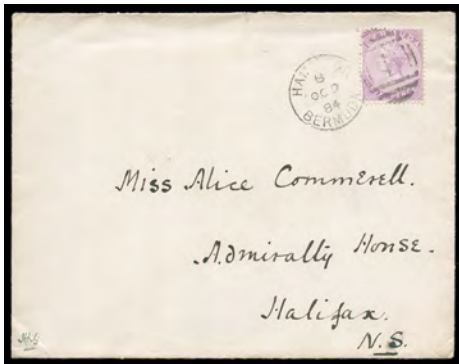 HA
B
OC
84
BERMUDA
Miss Alice Commerell.
Admiralty House.
Halifax.
N.S.